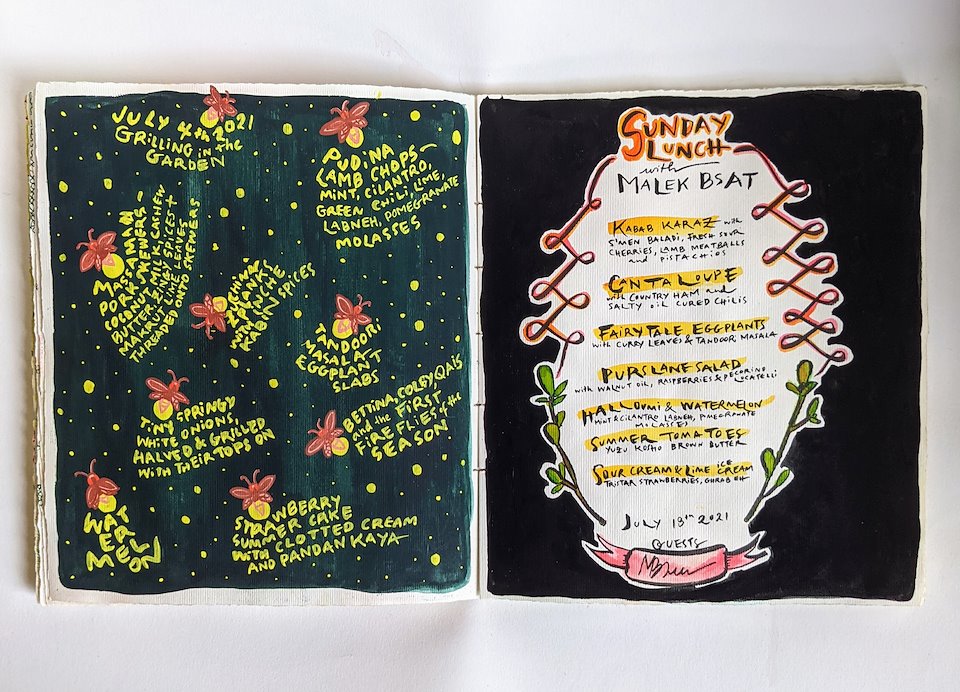 JULY 4th 2021
GRILLING in the
GARDEN
PUDINA
LAMB CHOPS—
MINT, CILANTRO,
GREEN CHILI, LIME,
LABNEH, POMEGRANATE
MOLASSES
MASSAMAN
PORK SKEWERS—
COCONUT MILK, CASHEW
BUTTER, ZINGY SPICES +
MAKRUT LIME LEAVES
THREADED ONTO SKEWERS
CHINA
EGGPLANTS
WITH
KABIN SPICES
TANDOORI
MASALA
EGGPLANT
SLABS
TINY SPRINGY
WHITE ONIONS,
HALVED & GRILLED
WITH THEIR TOPS ON
BETTINA, COLBY, QAIS
and the FIRST
FIREFLIES of the
SEASON
WAT
ER
MEL
ON
STRAWBERRY
SUMMER CAKE
WITH CLOTTED CREAM
AND PANDAN KAYA
SUNDAY
LUNCH
with
MALEK BSAT
KABAB KARAZ with
S'MEN BALADI, FRESH SOUR
CHERRIES, LAMB MEATBALLS
and PISTACHIOS
CANTALOUPE
with COUNTRY HAM and
SALTY OIL CURED CHILIS
FAIRYTALE EGGPLANTS
with CURRY LEAVES & TANDOOR MASALA
PURSLANE SALAD
with WALNUT OIL, RASPBERRIES & PECORINO
LOCATELLI
HALLOUMI & WATERMELON
MINT & CILANTRO LABNEH, POMEGRANATE
MOLASSES
SUMMER TOMATOES
YUZU KOSHO BROWN BUTTER
SOUR CREAM & LIME ICE CREAM
TRISTAR STRAWBERRIES, GHRABEH
JULY 13th 2021
GUESTS